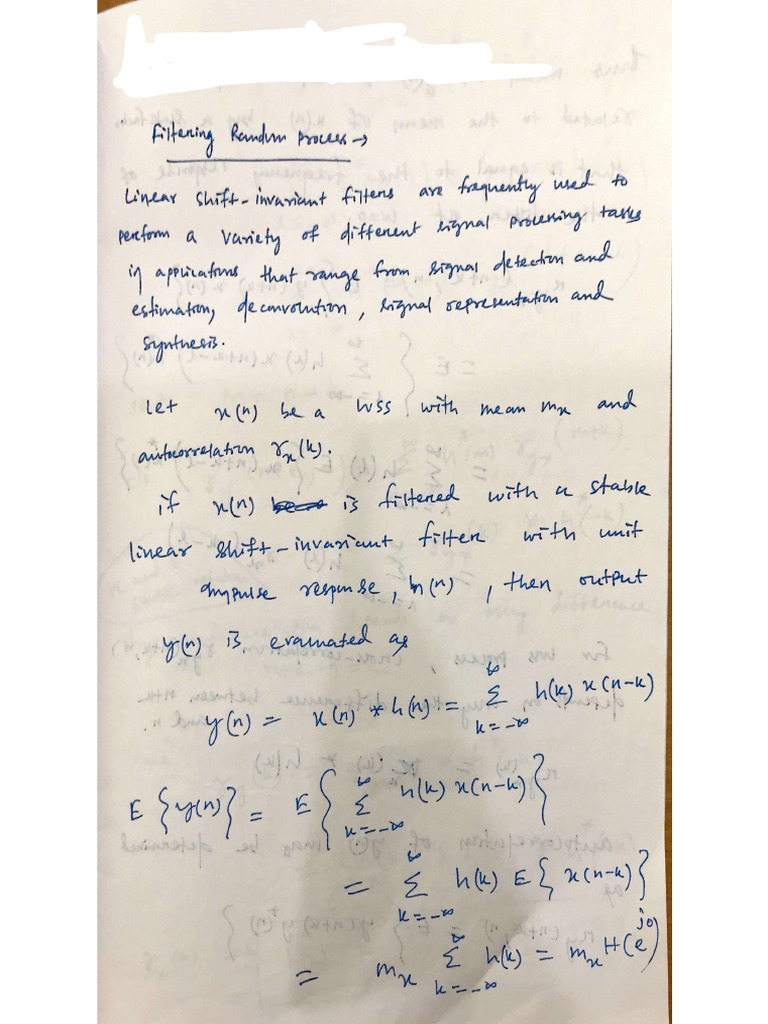 Filtering Random process →
Linear shift-invariant filters are frequently used to
perform a variety of different signal processing tasks
in applications that range from, signal detection and
estimation, deconvolution, signal representation and
synthesis.
Let x(n) be a WSS with mean mx and
autocorrelation rx(k).
if x(n) is filtered with a stable
linear shift-invariant filter with unit
impulse response, h(n), then output
y(n) is evaluated as
y(n) = x(n) * h(n) = ∑_{k=-∞}^{∞} h(k) x(n-k)
E {y(n)} = E { ∑_{k=-∞}^{∞} h(k) x(n-k) }
= ∑_{k=-∞}^{∞} h(k) E{ x(n-k) }
= mx ∑_{k=-∞}^{∞} h(k) = mx H(e^{j0})